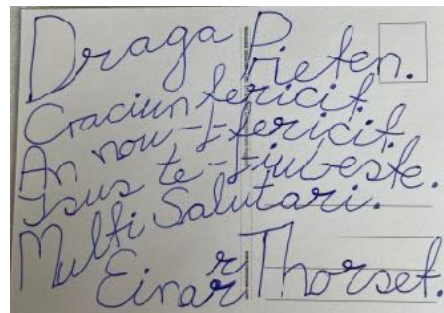 Draga Prieten.
Craciun fericit
An nou fericit,
Isus te iubeste.
Multi Salutari.
Einar Thorset.